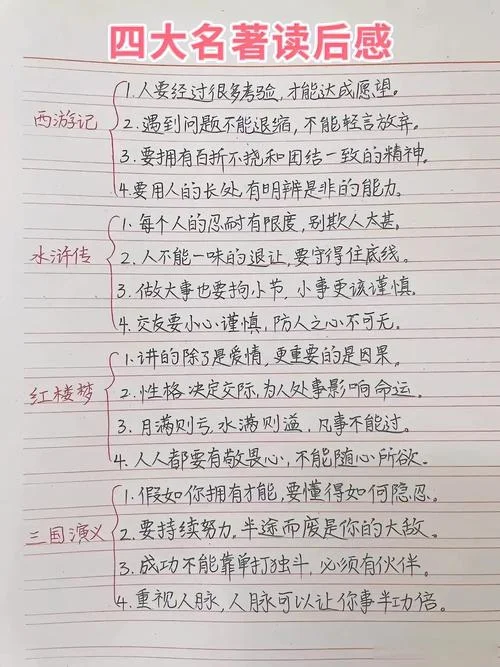 四大名著读后感
西游记
1.人要经过很多考验,才能达成愿望。
2.遇到问题不能退缩,不能轻言放弃。
3.要拥有百折不挠和团结一致的精神。
4.要用人的长处,有明辨是非的能力。
水浒传
1.每个人的忍耐有限度,别欺人太甚。
2.人不能一味的退让,要守得住底线。
3.做大事也要拘小节,小事更该谨慎。
4.交友要小心谨慎,防人之心不可无。
红楼梦
1.讲的除了是爱情,更重要的是因果。
2.性格决定交际,为人处事影响命运。
3.月满则亏,水满则溢,凡事不能过。
4.人人都要有敬畏心,不能随心所欲。
三国演义
1.假如你拥有才能,要懂得如何隐忍。
2.要持续努力,半途而废是你的大敌。
3.成功不能靠单打独斗,必须有伙伴。
4.重视人脉,人脉可以让你事半功倍。